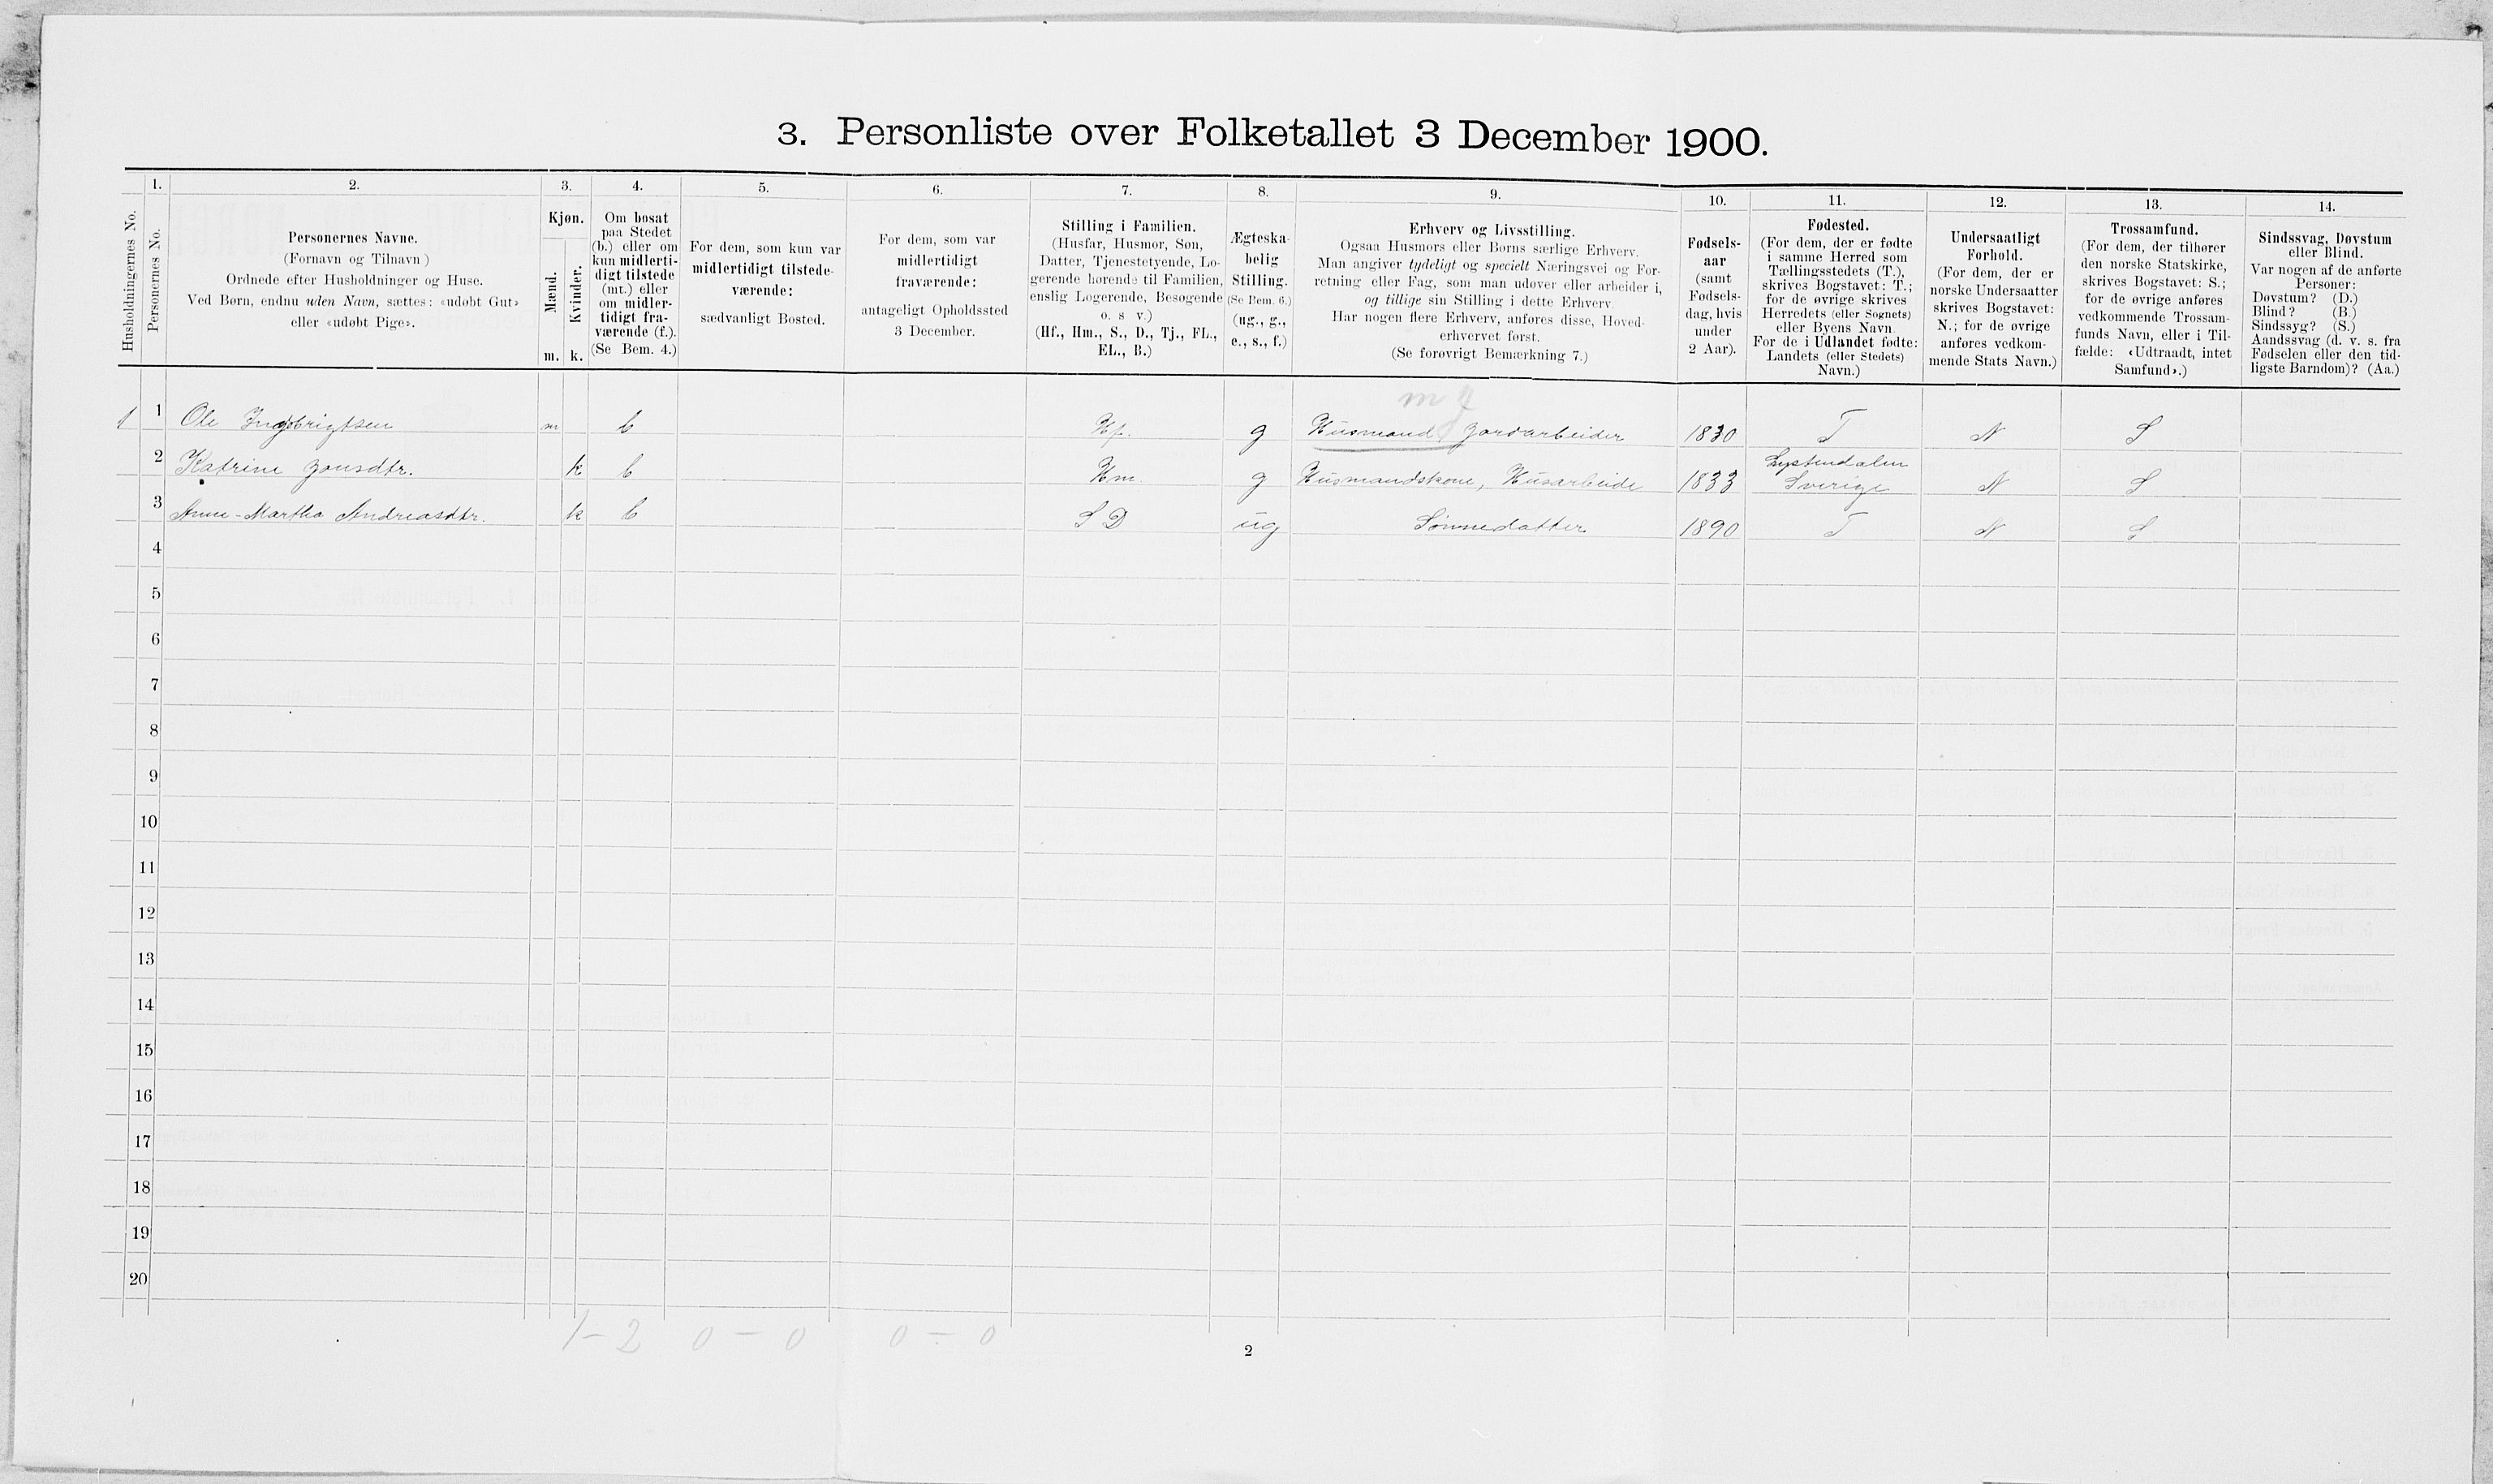 3. Personliste over Folketallet 3 December 1900.
1. 2. 3. 4. 5. 6. 7. 8. 9. 10. 11. 12. 13. 14.
Husholdningernes No.
Personernes No.
Personernes Navne.
(Fornavn og Tilnavn)
Ordnede efter Husholdninger og Huse.
Ved Børn, endnu uden Navn, sættes: «udøbt Gut»
eller «udøbt Pige».
Kjøn.
Mænd.
Kvinder.
m. k.
Om bosat
paa Stedet
(b.) eller om
kun midlerti-
digt tilstede
(mt.) eller
om midler-
tidigt fra-
værende (f.).
(Se Bem. 4.)
For dem, som kun var
midlertidigt tilstede-
værende:
sædvanligt Bosted.
For dem, som var
midlertidigt
fraværende:
antageligt Opholdssted
3 December.
Stilling i Familien.
(Husfar, Husmor, Søn,
Datter, Tjenestetyende, Lo-
gerende hørende til Familien,
enslig Logerende, Besøgende
o. s v.)
(Hf., Hm., S., D., Tj., FL.,
EL., B.)
Ægteska-
belig
Stilling.
(Se Bem. 6.)
(ug., g.,
e., s., f.)
Erhverv og Livsstilling.
Ogsaa Husmors eller Børns særlige Erhverv.
Man angiver tydeligt og specielt Næringsvei og For-
retning eller Fag, som man udøver eller arbeider i,
og tillige sin Stilling i dette Erhverv.
Har nogen flere Erhverv, anføres disse, Hoved-
erhvervet først.
(Se forøvrigt Bemærkning 7.)
Fødsels-
aar
(samt
Fødsels-
dag, hvis
under
2 Aar).
Fødested.
(For dem, der er fødte
i samme Herred som
Tællingsstedets (T.),
skrives Bogstavet: T.;
for de øvrige skrives
Herredets (eller Sognets)
eller Byens Navn.
For de i Udlandet fødte:
Landets (eller Stedets)
Navn.)
Undersaatligt
Forhold.
(For dem, der er
norske Undersaatter
skrives Bogstavet:
N.; for de øvrige
anføres vedkom-
mende Stats Navn.)
Trossamfund.
(For dem, der tilhører
den norske Statskirke,
skrives Bogstavet: S.;
for de øvrige anføres
vedkommende Trossam-
funds Navn, eller i Til-
fælde: «Udtraadt, intet
Samfund».)
Sindssvag, Døvstum
eller Blind.
Var nogen af de anførte
Personer:
Døvstum? (D.)
Blind? (B.)
Sindssyg? (S.)
Aandssvag (d. v. s. fra
Fødselen eller den tid-
ligste Barndom)? (Aa.)
1 1 Ole Ingebrigtsen m b Hf. g Husmand Jordarbeider 1830 T N S
2 Katrine Jonsdtr. k b Hm g Husmandskone, Husarbeide 1833 Sverige N S
3 Anne-Martha Andreasdtr. k b S D ug Sønnedatter 1890 T N S
4
5
6
7
8
9
10
11
12
13
14
15
16
17
18
19
20
1-2 0-0 0-0
2